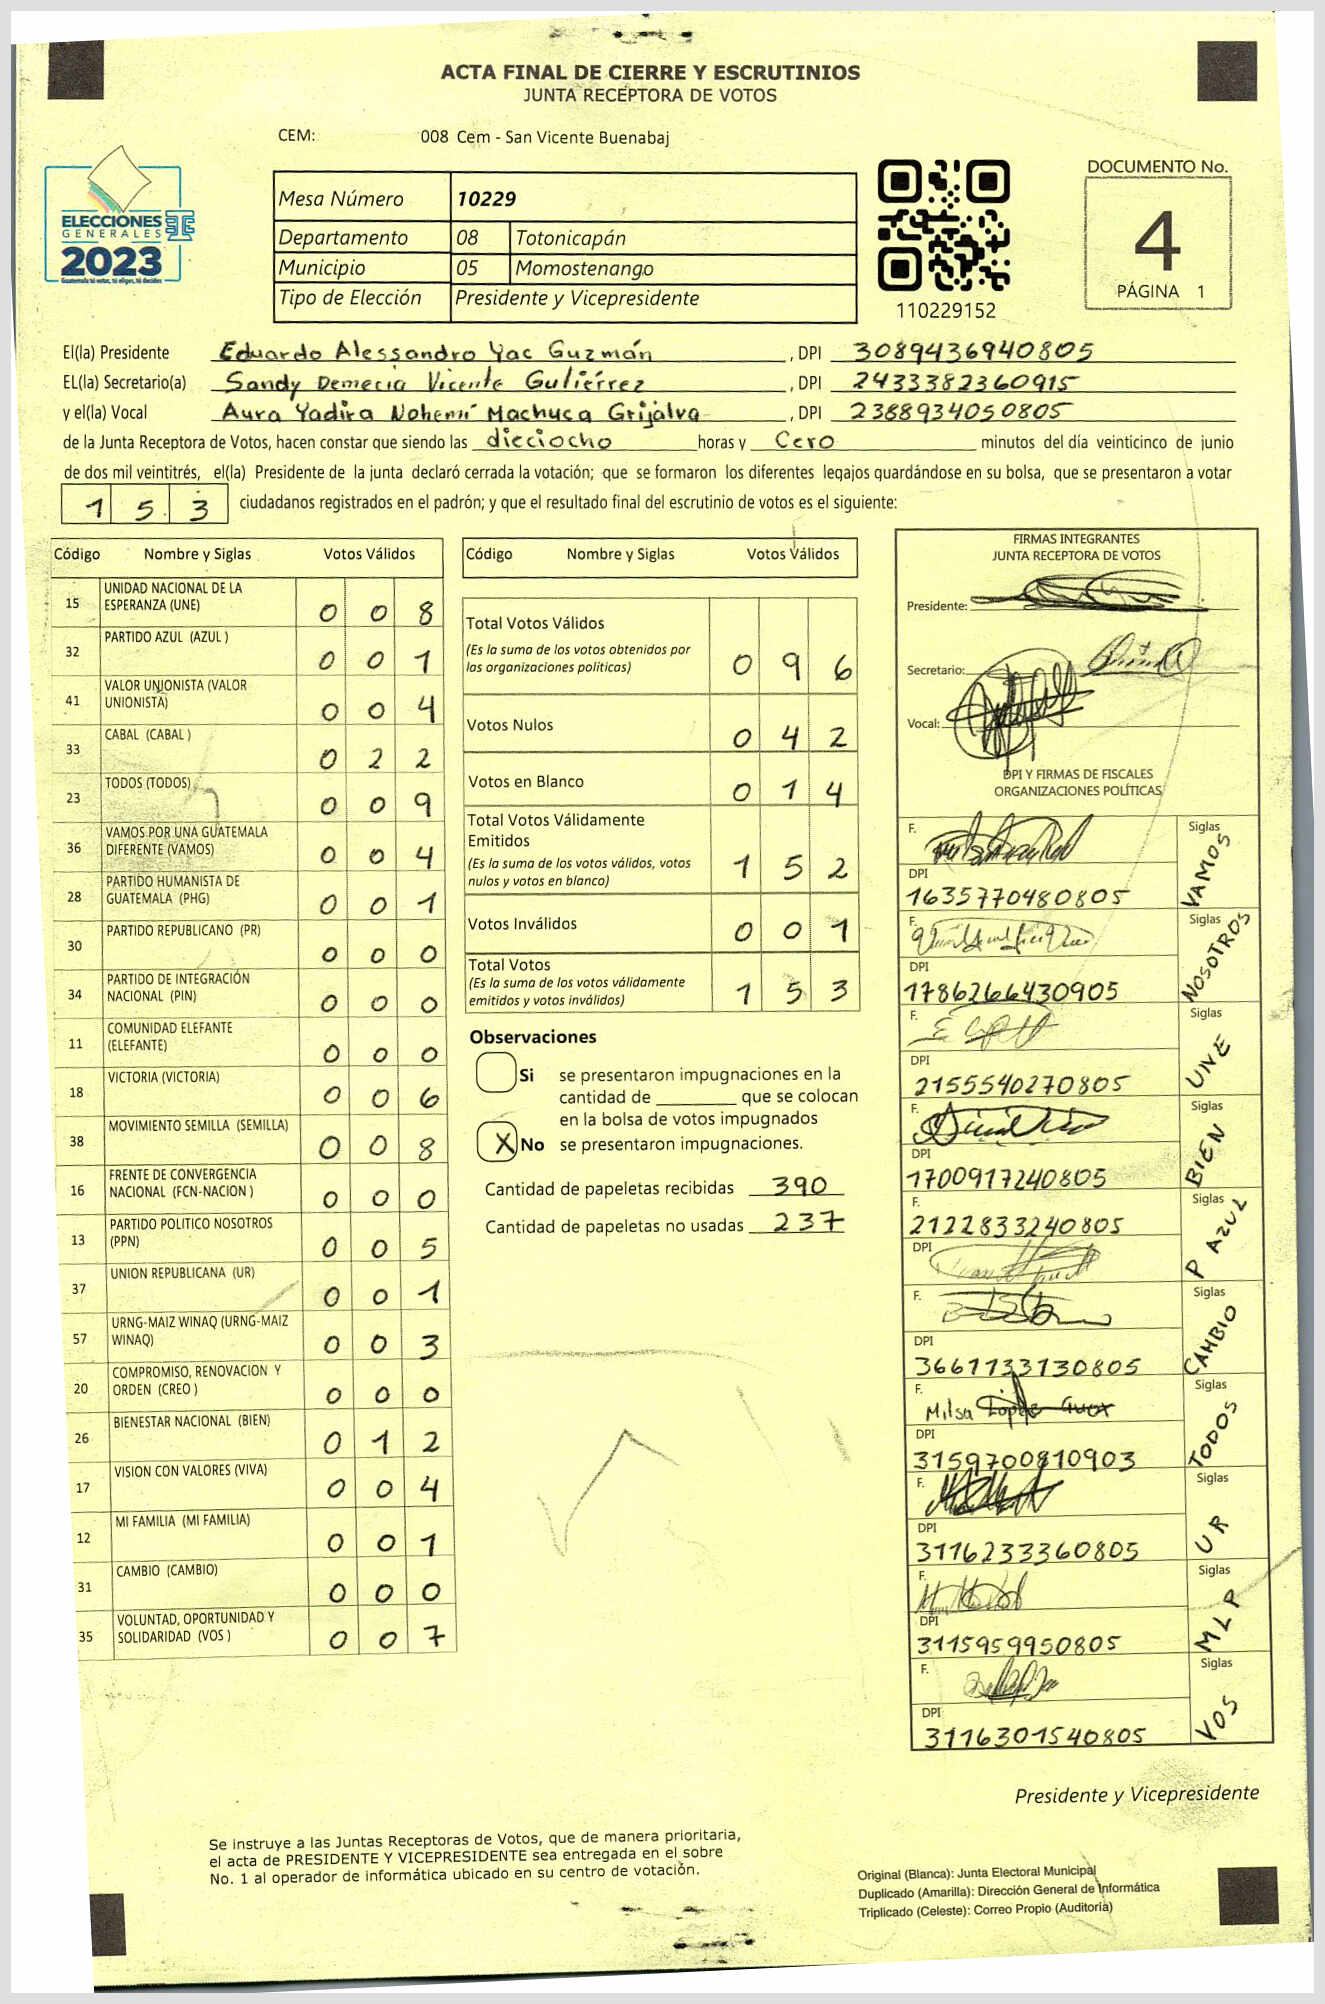 ACTA FINAL DE CIERRE Y ESCRUTINIOS
JUNTA RECEPTORA DE VOTOS
CEM: 008 Cem - San Vicente Buenabaj
ELECCIONES
GENERALES
2023
Guatemala tú votas, tú eliges, tú decides
Mesa Número 10229
Departamento 08 Totonicapán
Municipio 05 Momostenango
Tipo de Elección Presidente y Vicepresidente
110229152
DOCUMENTO No.
4
PÁGINA 1
El(la) Presidente Eduardo Alessandro Yac Guzmán , DPI 3089436940805
EL(la) Secretario(a) Sandy Demecia Vicente Gutiérrez , DPI 2433382360915
y el(la) Vocal Aura Yadira Nohemí Machuca Grijalva , DPI 2388934050805
de la Junta Receptora de Votos, hacen constar que siendo las dieciocho horas y Cero minutos del día veinticinco de junio
de dos mil veintitrés, el(la) Presidente de la junta declaró cerrada la votación; que se formaron los diferentes legajos guardándose en su bolsa, que se presentaron a votar
153 ciudadanos registrados en el padrón; y que el resultado final del escrutinio de votos es el siguiente:
Código Nombre y Siglas Votos Válidos
15 UNIDAD NACIONAL DE LA ESPERANZA (UNE) 0 0 8
32 PARTIDO AZUL (AZUL ) 0 0 1
41 VALOR UNIONISTA (VALOR UNIONISTA) 0 0 4
33 CABAL (CABAL ) 0 2 2
23 TODOS (TODOS) 0 0 9
36 VAMOS POR UNA GUATEMALA DIFERENTE (VAMOS) 0 0 4
28 PARTIDO HUMANISTA DE GUATEMALA (PHG) 0 0 1
30 PARTIDO REPUBLICANO (PR) 0 0 0
34 PARTIDO DE INTEGRACIÓN NACIONAL (PIN) 0 0 0
11 COMUNIDAD ELEFANTE (ELEFANTE) 0 0 0
18 VICTORIA (VICTORIA) 0 0 6
38 MOVIMIENTO SEMILLA (SEMILLA) 0 0 8
16 FRENTE DE CONVERGENCIA NACIONAL (FCN-NACION ) 0 0 0
13 PARTIDO POLITICO NOSOTROS (PPN) 0 0 5
37 UNION REPUBLICANA (UR) 0 0 1
57 URNG-MAIZ WINAQ (URNG-MAIZ WINAQ) 0 0 3
20 COMPROMISO, RENOVACION Y ORDEN (CREO ) 0 0 0
26 BIENESTAR NACIONAL (BIEN) 0 1 2
17 VISION CON VALORES (VIVA) 0 0 4
12 MI FAMILIA (MI FAMILIA) 0 0 1
31 CAMBIO (CAMBIO) 0 0 0
35 VOLUNTAD, OPORTUNIDAD Y SOLIDARIDAD (VOS ) 0 0 7
Código Nombre y Siglas Votos Válidos
Total Votos Válidos 0 9 6
(Es la suma de los votos obtenidos por
las organizaciones políticas)
Votos Nulos 0 4 2
Votos en Blanco 0 1 4
Total Votos Válidamente
Emitidos 1 5 2
(Es la suma de los votos válidos, votos
nulos y votos en blanco)
Votos Inválidos 0 0 1
Total Votos 1 5 3
(Es la suma de los votos válidamente
emitidos y votos inválidos)
Observaciones
Si se presentaron impugnaciones en la
cantidad de ________ que se colocan
en la bolsa de votos impugnados
X No se presentaron impugnaciones.
Cantidad de papeletas recibidas 390
Cantidad de papeletas no usadas 237
FIRMAS INTEGRANTES
JUNTA RECEPTORA DE VOTOS
Presidente:
Secretario:
Vocal:
DPI Y FIRMAS DE FISCALES
ORGANIZACIONES POLÍTICAS
F. Siglas VAMOS
DPI 1635770480805
F. Siglas NOSOTROS
DPI 1786266430905
F. Siglas UNE
DPI 2155540270805
F. Siglas BIEN
DPI 1700917240805
F. 2122833240805 Siglas P AZUL
DPI
F. Siglas CAMBIO
DPI 3661733130805
F. Milsa López Siglas TODOS
DPI 3159700810903
F. Siglas UR
DPI 3116233360805
F. Siglas MLP
DPI 3115959950805
F. Siglas VOS
DPI 3116301540805
Presidente y Vicepresidente
Se instruye a las Juntas Receptoras de Votos, que de manera prioritaria,
el acta de PRESIDENTE Y VICEPRESIDENTE sea entregada en el sobre
No. 1 al operador de informática ubicado en su centro de votación.
Original (Blanca): Junta Electoral Municipal
Duplicado (Amarilla): Dirección General de Informática
Triplicado (Celeste): Correo Propio (Auditoría)